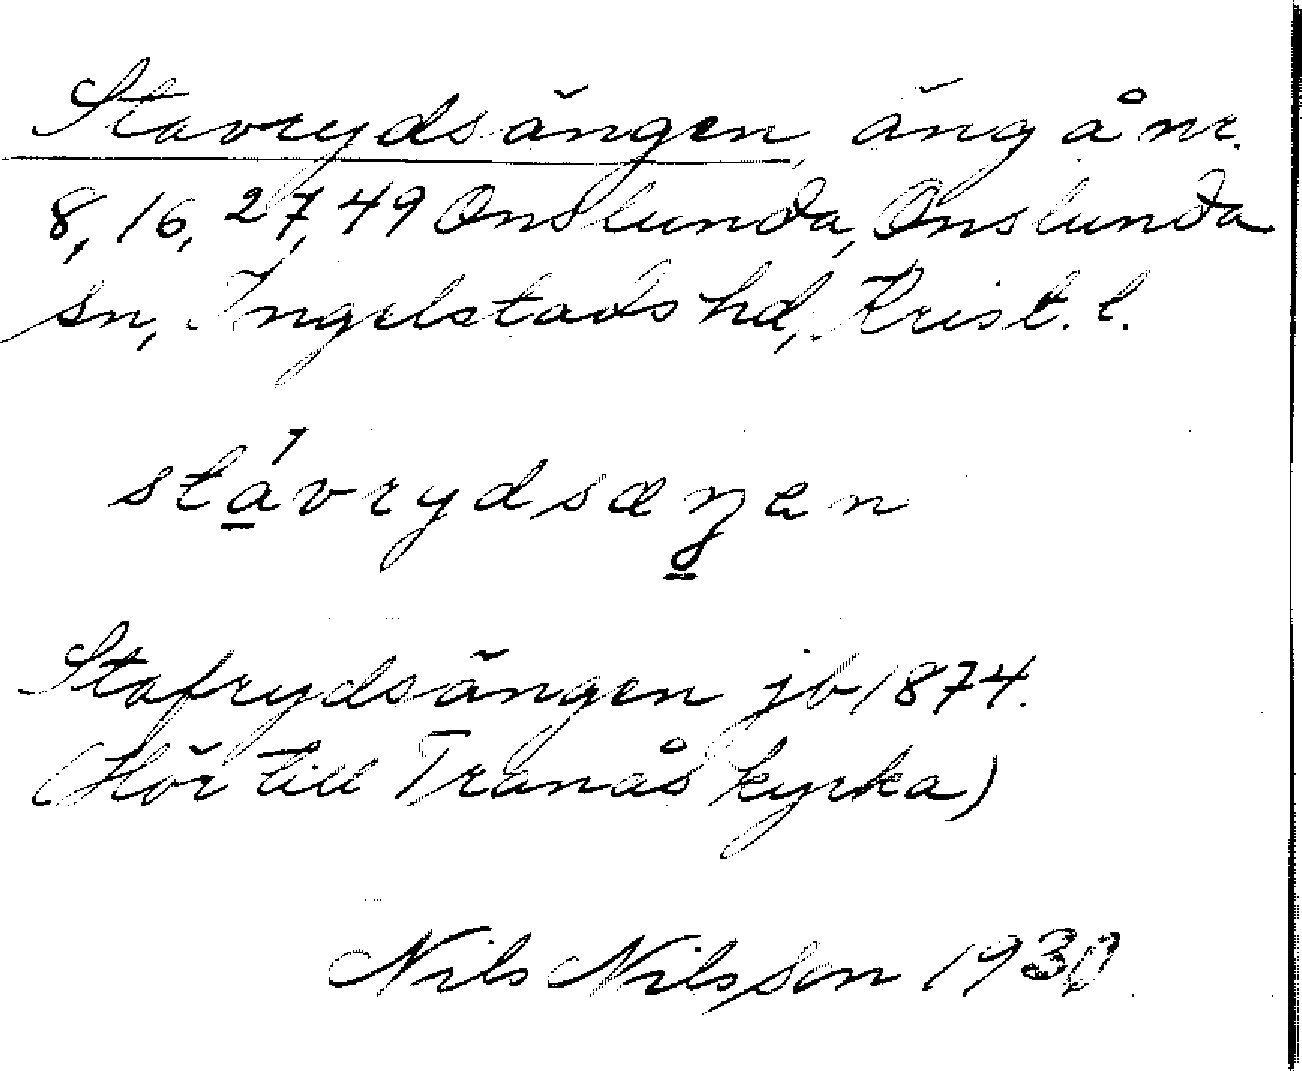 Stavrydsängen, äng å nr.
8, 16, 27, 49 Onslunda, Onslunda
sn, Ingelstads hd, Krist. l.
stávrydsæŋen
Stafrydsängen jb 1874.
(Hör till Tranås kyrka)
Nils Nilsson 1930